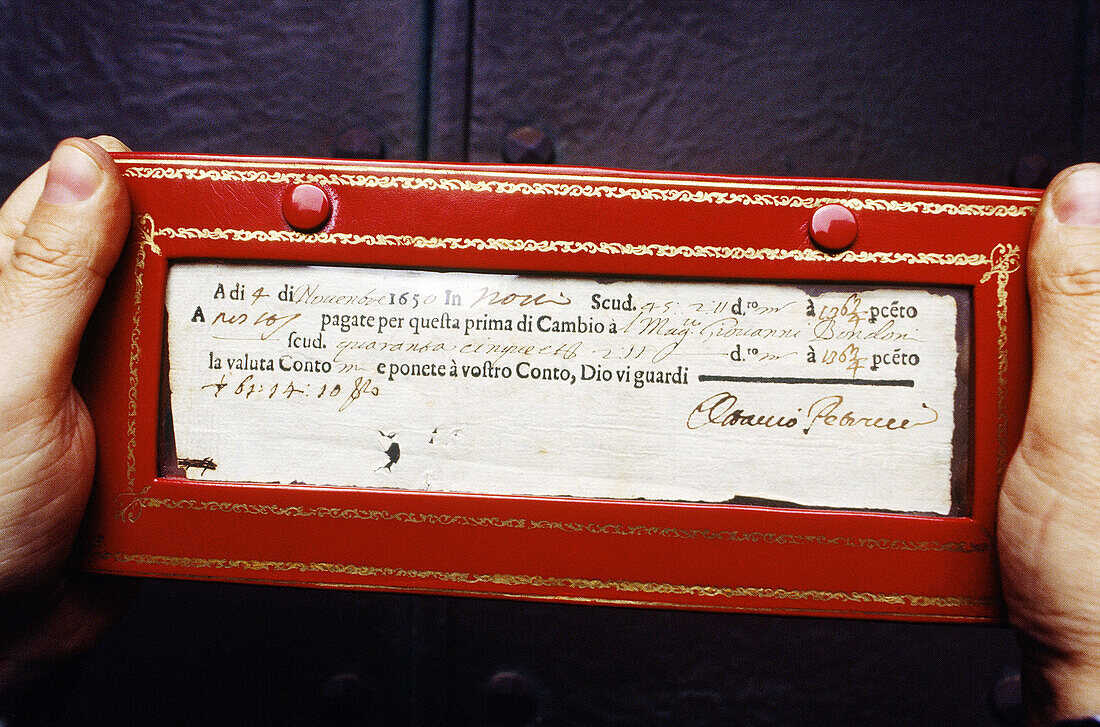 A di 4 di Nouenbre 1650 In Noui Scud. 45: 2:11 d.ro m à 196¾ pcẽto
A pagate per queſta prima di Cambio à l Mag.co Giouanni
ſcud. quaranta cinque 2:11 d.ro m à 196¾ pcẽto
la valuta Conto m e ponete à voſtro Conto, Dio vi guardi
61: 14: 10